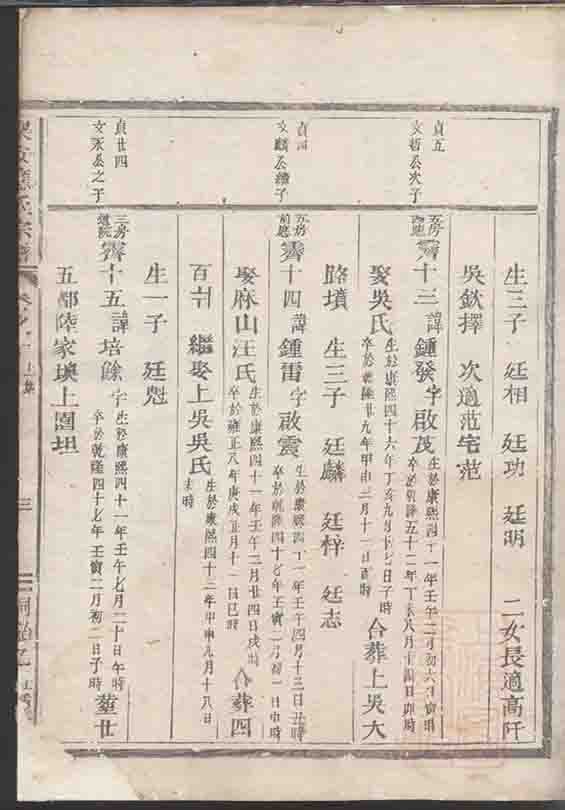 生三子 廷相 廷功 廷明 二女長適高阡
吳欽擇 次適范宅范
貞五
文哲公次子
五房
霽十三 諱鍾發 字啟茂 生於康熙四十一年壬午二月初六日寅時
卒於乾隆五十二年丁未八月十四日卯時
娶吳氏 生於康熙四十六年丁亥九月十七日子時
卒於乾隆廿九年甲申三月十一日酉時 合葬上吳大
路墳 生三子 廷麟 廷梓 廷志
貞四
文麟公繼子
五房
前廳
霽十四 諱鍾雷 字啟震 生於康熙四十一年壬午四月十三日丑時
卒於乾隆四十七年壬寅二月初一日申時
娶麻山汪氏 生於康熙四十一年壬午三月廿四日戌時
卒於雍正八年庚戌五月十一日巳時 合葬四
百廿 繼娶上吳吳氏 生於康熙四十三年甲申九月十八日
未時
生一子 廷魁
貞廿四
文永公之子
三房
道院
霽十五 諱培餘 字 生於康熙四十一年壬午七月二十日午時
卒於乾隆四十七年壬寅二月初二日子時 葬廿
五都陸家墺上園坦
氏宗譜
三